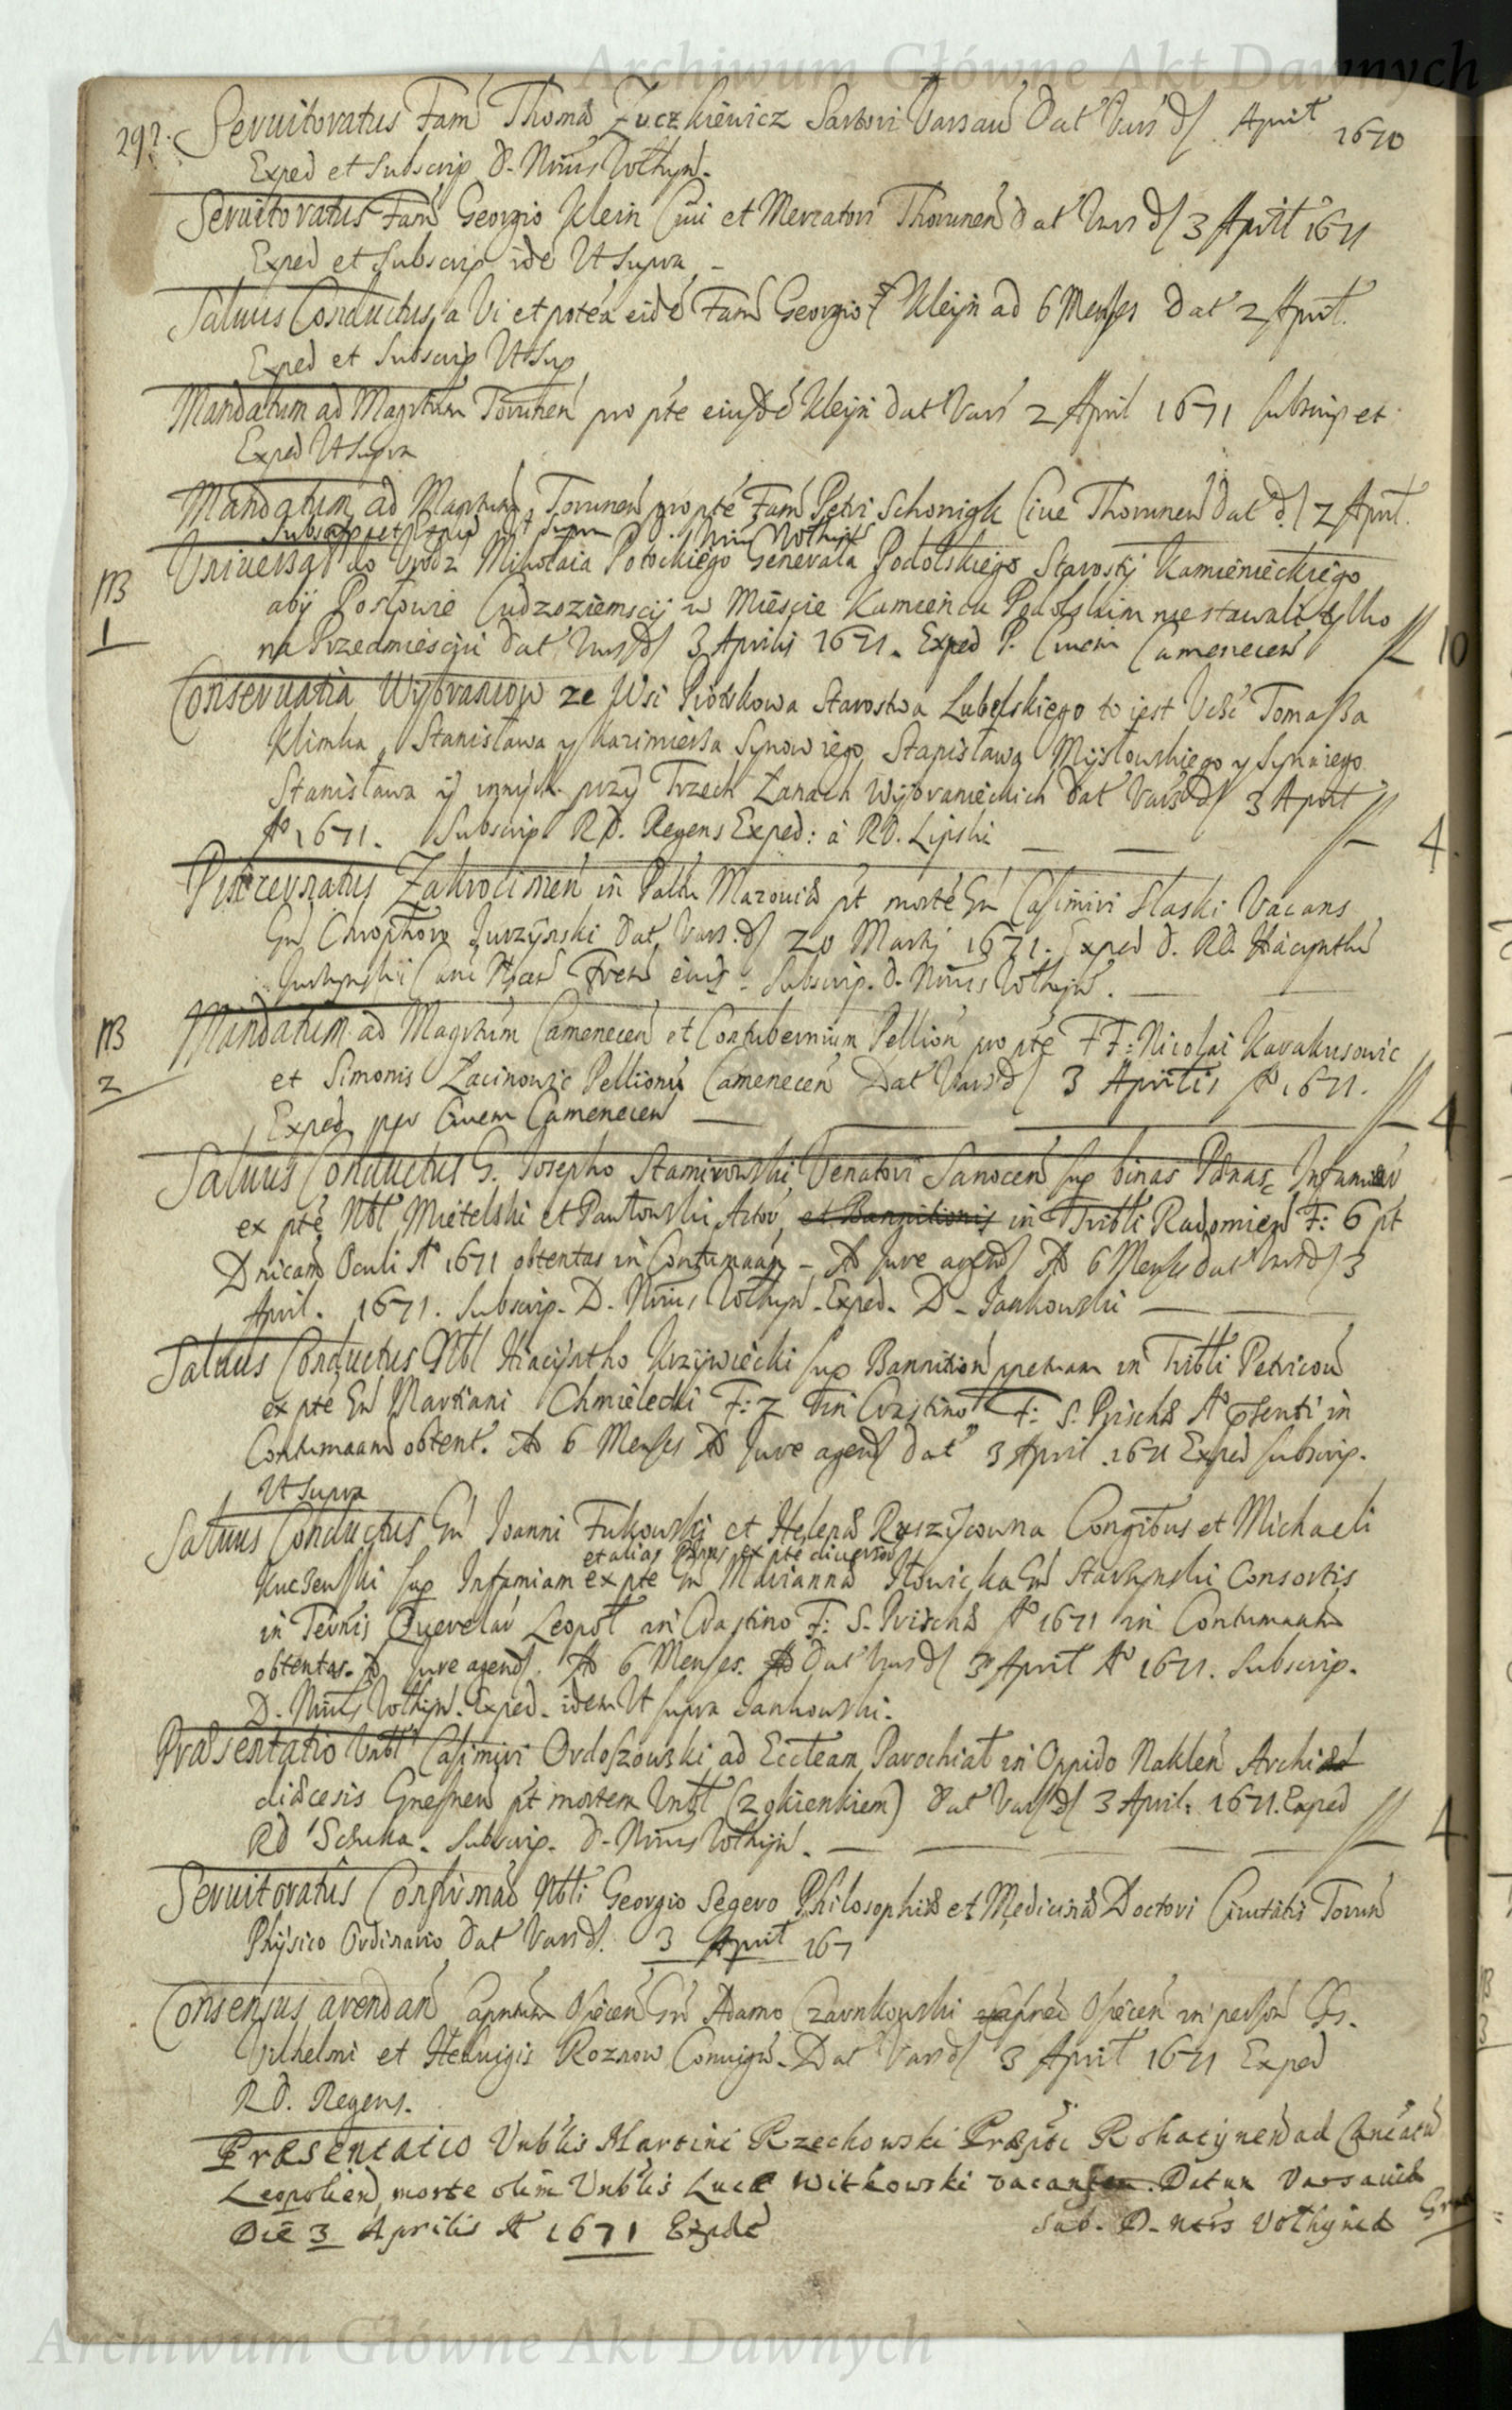 Archiwum Główne Akt Dawnych
292. Servitoratus Fam Thomæ Zuczkiewicz Sartori Varsav Dat Vars d. April 1670
Exped et Subscrip D. Nrius Volhyn.
Servitoratus Fam Georgio Klein Civi et Mercatori Thorunen dat Vars d 3 April 1671
Exped et Subscrip idē Ut supra
Salvus Conductus a Vi et potēa eidē Fam Georgio Kleÿn ad 6 Menses Dat 2 April.
Exped et Subscrip Ut Sup
Mandatum ad Magrtum Torunen pro pte eiusdē Kleÿn dat Vars 2 April 1671 subscrip et
Exped Ut supra
Mandatum ad Magrtum Torunen pro pte Fam Petri Schonigk Cive Thorunen Dat d 2 April.
Subscrip et Exped ut supra D. Nrius Volhyn
Universał do Urodz Mikołaia Potockiego Generała Podolskiego Starosty Kamienieckiego
NB 1 abÿ Posłowie Cudzoziemscÿ w Mieście Kamieńcu Podolskim nie stawali tylko
na Przedmieściu Dat Vars d 3 Aprilis 1671. Exped P. Civem Camenecen 10
Conservatia Wybrańcow ze Wsi Piotrkowa Starostwa Lubelskiego to iest Ucść Tomaßa
Klimka, Stanisława y Kazimierßa Synow iego, Stanisława Mysłowskiego y Syna iego
Stanisława ÿ innych przÿ Trzech Łanach Wybranieckich Dat Vars d 3 April
Ao 1671. Subscrip RD. Regens Exped: à RD. Lipski 4.
Pincernatus Zakrocimen in Paltu Mazoviæ pt mortē Gn Casimiri Slaski Vacans
Gn Chrophoro Jurzÿnski Dat Vars. d 20 Martÿ 1671. Exped D. RD. Hiacynthū
Subscrip. D. Nrius Volhÿn.
NB 2 Mandatum ad Magrtum Camenecen et Contubernium Pellion pro pte FF: Nicolai Karakusowic
et Simonis Zacinowic Pellionū Camenecen Dat Vars d 3 Aprilis Ao 1671.
Exped per Civem Camenecen 4
Salvus Conductus G. Josepho Stamirowski Venatori Sanocen sup binas Pænas Infamiæ
ex pte Nbl Mietelski et Pawłowski Actor et Bannitionis in Tribli Radomien F: 6 pt
Dnicam Oculi Ao 1671 obtentas in Contumaam - Ad Jure agend Ad 6 Menses dat Vars d 3
April. 1671. Subscrip. D. Nrius Volhyn. Exped. D. Jankowski
Salvus Conductus Nbl Hiacÿntho Krzÿwiecki sup Bannition ppetuam in Tribli Petricov
ex pte Gn Martiani Chmielecki F: 2 in Crastino F: S. Priscæ Ao psenti in
Contumaam obtent. Ad 6 Menses Ad Jure agend Dat 3 April. 1671 Exped subscrip.
Ut supra
Salvus Conductus Gn Joanni Fukowski et Helenæ Ruszÿcowna Congibus et Michaeli
et alias Pænas ex pte diversor
Kuczewski sup Infamiam ex pte Gn Mariannæ Iłowicka Gn Starzynski Consortis
in Ternis Querelar Leopol in Crastino F: S. Priscæ Ao 1671 in Contumaam
obtentas. Ad Jure agend. Ad 6 Menses. Dat Vars d 3 April Ao 1671. Subscrip.
D. Nrius Volhyn. Exped. idem Ut supra Jankowski.
Præsentatio Vnbl Casimiri Ordoszowski ad Eccteam Parochial in Oppido Naklen Archi
diæcesis Gnesnen pt mortem Vnbl (z okienkiem) Dat Vars d 3 April. 1671. Exped
RD Schuka. Subscrip. D. Nrius Volhÿn. 4
Servitoratus Confirmao Nbli Georgio Segero Philosophiæ et Medicinæ Doctori Civitatis Torun
Phÿsico Ordinario Dat Vars d. 3 April 167
Consensus arendan Captum Osiecen Gn Adamo Czarnkowski Osiecen in person GG.
Vilhelmi et Hedvigis Roznow Conuigu. Dat Vars d 3 April 1671 Exped
RD. Regens.
Præsentatio Vnblis Martini Rzechowski Præpti Rohatÿnen ad Cancatū
Leopolien, morte olim Vnblis Lucæ Witkowski vacantem. Datum Varsaviæ
Die 3 Aprilis Ao 1671 Expdt Sub. D. Nrīs Volhÿniæ
Archiwum Główne Akt Dawnych